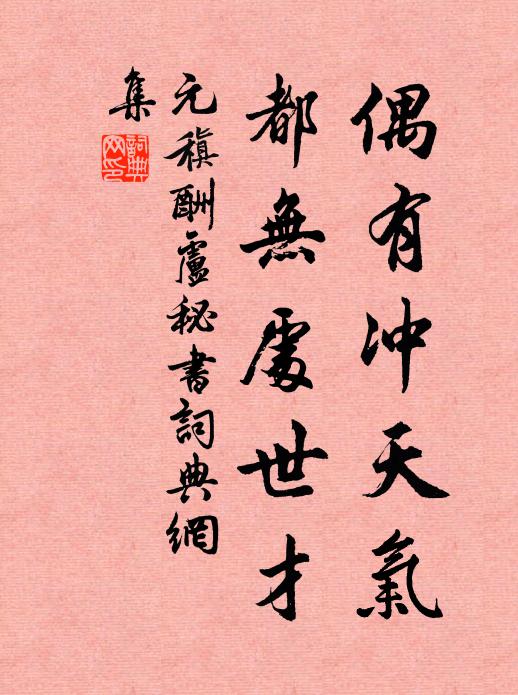 偶有冲天氣
都無處世才
元稹酬盧秘書詞典網
集
詞典
网印